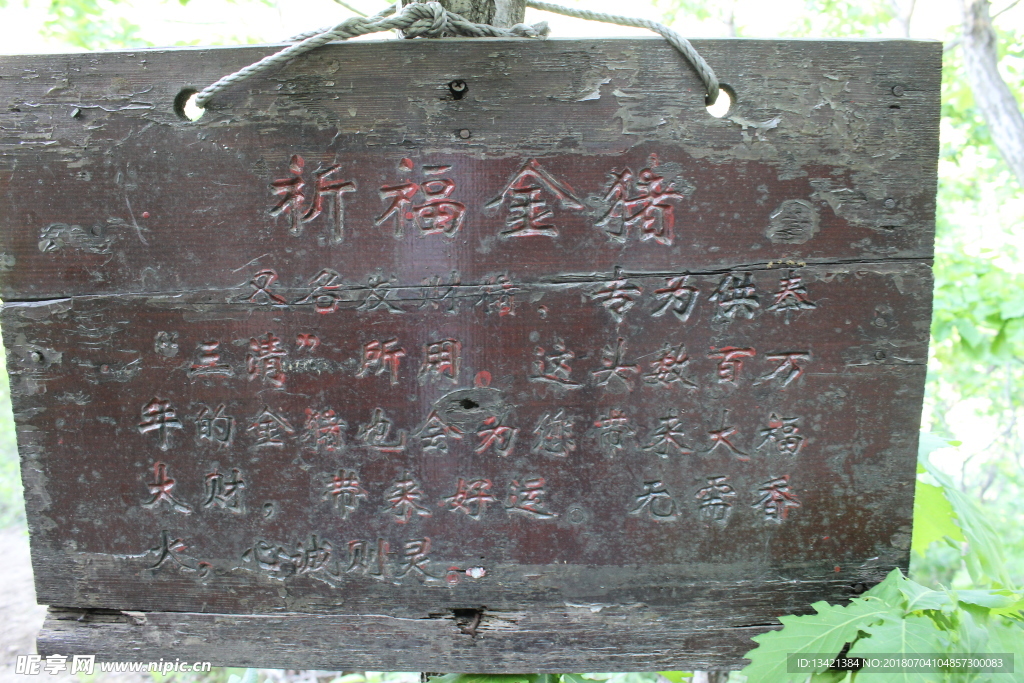 祈福金猪
又名发财猪，专为供奉
“三清”所用。这头数百万
年的金猪也会为您带来大福
大财，带来好运。无需香
火，心诚则灵。
昵享网 www.nipic.cn
ID:13421384 NO:20180704104857300083